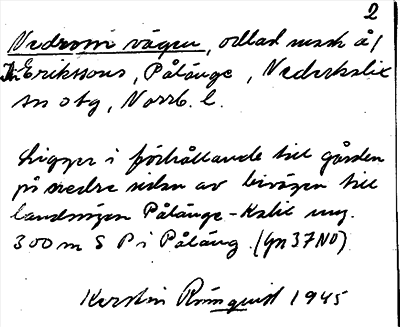 2
Nedrom vägen, odlad mark å
Erikssons, Pålänge, Nederkalix
sn o tg, Norrb. l.
Ligger i förhållande till gården
på nedre sidan av bivägen till
landsvägen Pålänge-Kalix ung.
300 m S P i Påläng. (Gn37NO)
Kerstin Rönnquist 1945